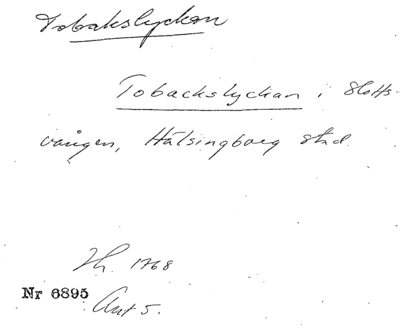 Tobakslyckan
Tobackslyckan i Slotts-
vången, Hälsingborg stad.
Th. 1768
Nr 6895
Ant 5.